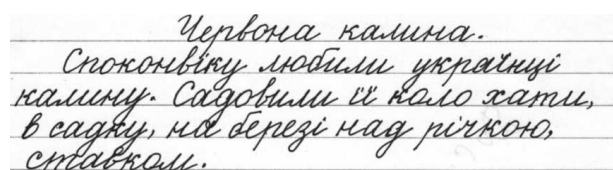 Червона калина.
Споконвіку любили українці
калину. Садовили її коло хати,
в садку, на березі над річкою,
ставком.